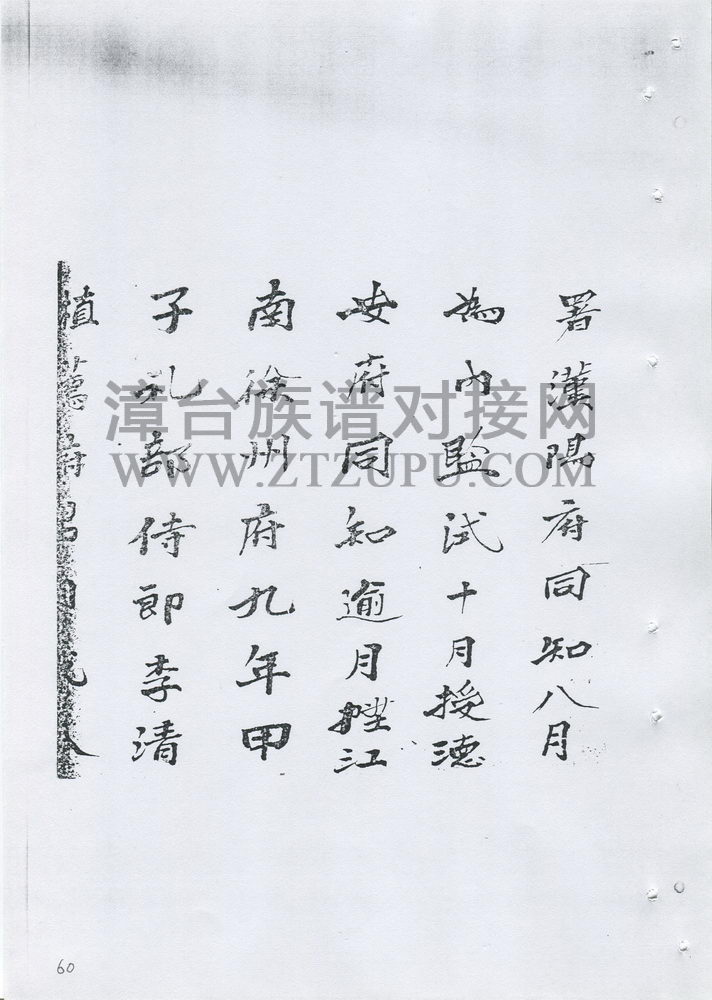 署漢陽府同知八月
為內監試十月授德
安府同知逾月陞江
南徐州府九年甲
子礼部侍郎李清
植
漳台族谱对接网
WWW.ZTZUPU.COM
60